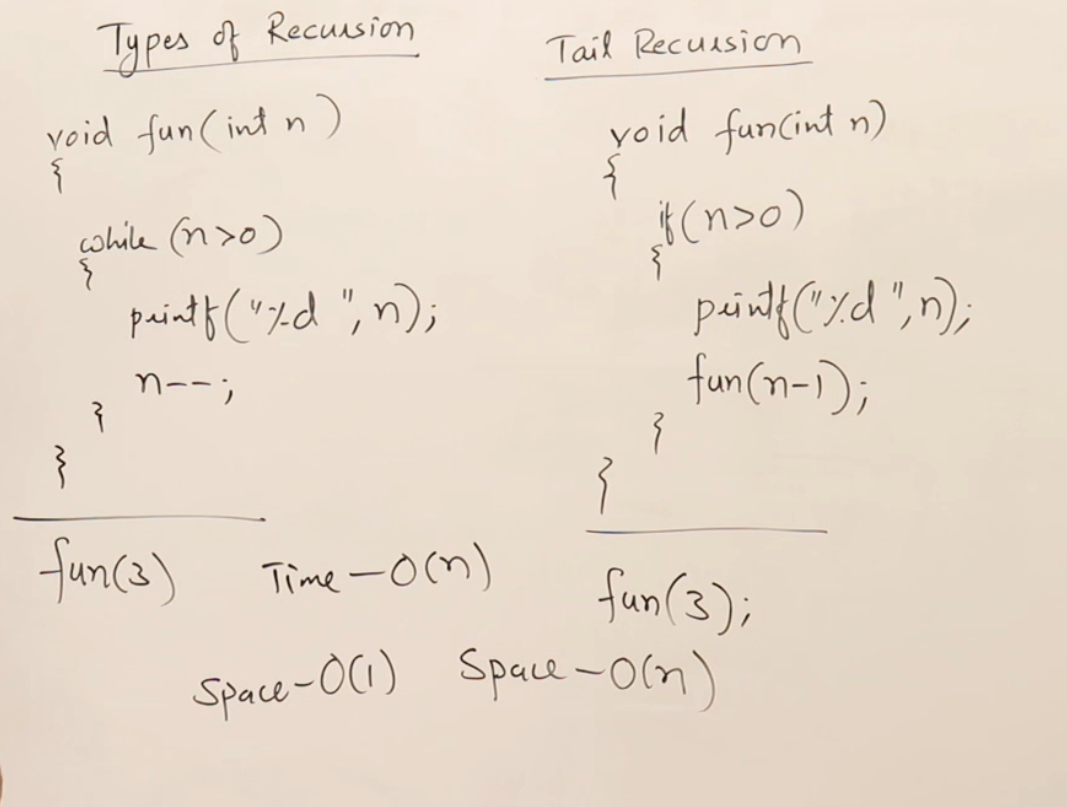 Types of Recursion
void fun(int n)
{
while (n>0)
{
printf("%d ", n);
n--;
}
}
fun(3)
Tail Recursion
void fun(int n)
{
if(n>0)
{
printf("%d ", n);
fun(n-1);
}
}
fun(3);
Time - O(n)
Space - O(1)
Space - O(n)